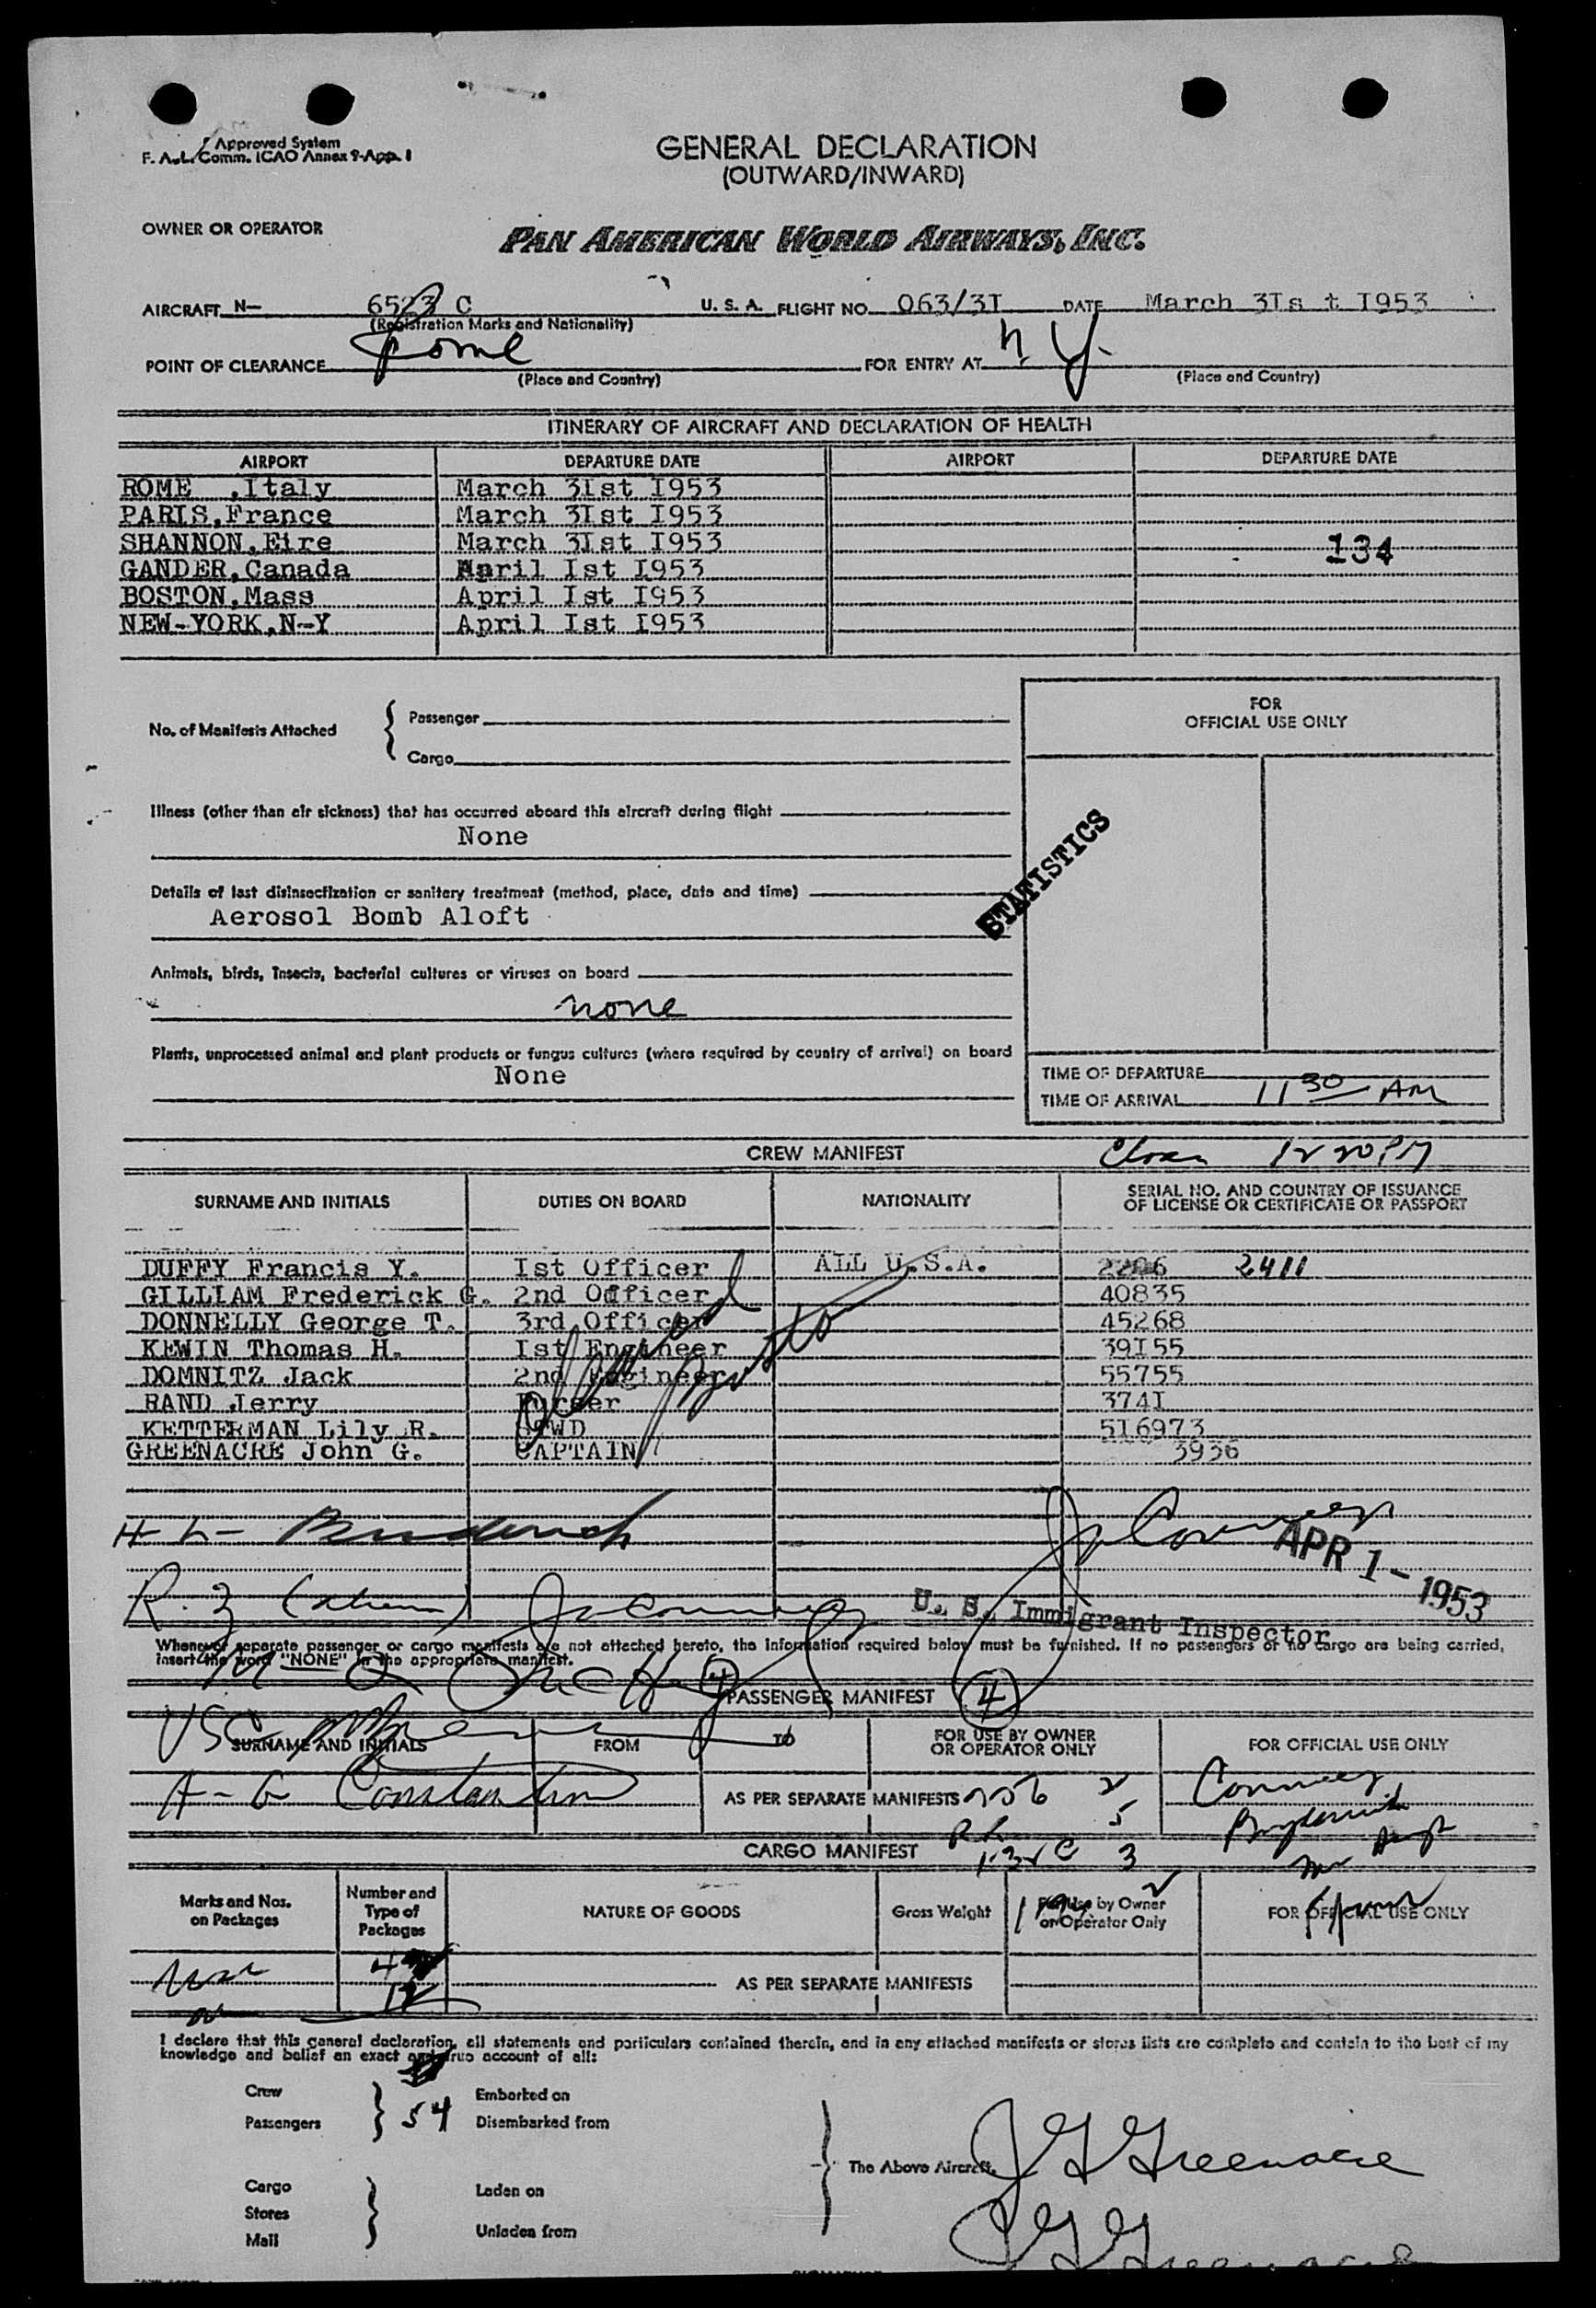 Approved System
F. A. L. Comm. ICAO Annex 9-App. 1
GENERAL DECLARATION
(OUTWARD/INWARD)
OWNER OR OPERATOR
PAN AMERICAN WORLD AIRWAYS, INC.
AIRCRAFT N- 6523 C U. S. A. FLIGHT NO. 063/3I DATE March 3Is t I953
(Registration Marks and Nationality)
POINT OF CLEARANCE Rome FOR ENTRY AT N. Y.
(Place and Country) (Place and Country)
ITINERARY OF AIRCRAFT AND DECLARATION OF HEALTH
AIRPORT DEPARTURE DATE AIRPORT DEPARTURE DATE
ROME ,Italy March 3Ist I953
PARIS,France March 3Ist I953
SHANNON,Eire March 3Ist I953 134
GANDER,Canada April Ist I953
BOSTON,Mass April Ist I953
NEW-YORK,N-Y April Ist I953
FOR
OFFICIAL USE ONLY
No. of Manifests Attached
Passenger
Cargo
Illness (other than air sickness) that has occurred aboard this aircraft during flight
None
STATISTICS
Details of last disinsectization or sanitary treatment (method, place, date and time)
Aerosol Bomb Aloft
Animals, birds, insects, bacterial cultures or viruses on board
none
Plants, unprocessed animal and plant products or fungus cultures (where required by country of arrival) on board
None
TIME OF DEPARTURE
TIME OF ARRIVAL 11 30 AM
CREW MANIFEST 12 20 PM
SURNAME AND INITIALS DUTIES ON BOARD NATIONALITY SERIAL NO. AND COUNTRY OF ISSUANCE
OF LICENSE OR CERTIFICATE OR PASSPORT
DUFFY Francis Y. Ist Officer ALL U.S.A. 2411
GILLIAM Frederick G. 2nd Officer 40835
DONNELLY George T. 3rd Officer 45268
KEWIN Thomas H. Ist Engineer 39I55
DOMNITZ Jack 2nd Engineer 55755
RAND Jerry Purser 374I
KETTERMAN Lily R. STWD 5I6973
GREENACRE John G. CAPTAIN 3936
Boston
APR 1 - 1953
U. S. Immigrant Inspector
Whenever separate passenger or cargo manifests are not attached hereto, the information required below must be furnished. If no passengers or no cargo are being carried,
insert the word "NONE" in the appropriate manifest.
PASSENGER MANIFEST 4
SURNAME AND INITIALS FROM TO FOR USE BY OWNER
OR OPERATOR ONLY FOR OFFICIAL USE ONLY
A - G Constantin
AS PER SEPARATE MANIFESTS
CARGO MANIFEST
Marks and Nos.
on Packages
Number and
Type of
Packages
NATURE OF GOODS Gross Weight For Use by Owner
or Operator Only FOR OFFICIAL USE ONLY
AS PER SEPARATE MANIFESTS
I declare that this general declaration, all statements and particulars contained therein, and in any attached manifests or stores lists are complete and contain to the best of my
knowledge and belief an exact and true account of all:
Crew Embarked on
Passengers 54 Disembarked from
The Above Aircraft.
JGGreenacre
Cargo Laden on
Stores
Mail Unladen from
JGGreenacre